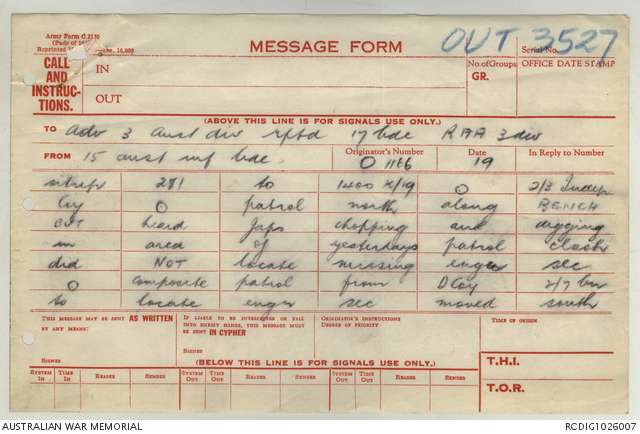 Army Form C.2136
(Pads of 100)
MESSAGE FORM
OUT 3527
Serial No.
CALL
AND
INSTRUC-
TIONS.
IN
OUT
No. of Groups
GR.
OFFICE DATE STAMP
(ABOVE THIS LINE IS FOR SIGNALS USE ONLY.)
TO Adv 3 Aust div rptd 17 bde RAA 3 div
FROM 15 aust inf bde
Originator's Number
O 1166
Date
19
In Reply to Number
sitrep 281 to 1400 K/19 O 2/3 Indep
Coy O patrol north along BENCH
CUT heard Japs chopping and digging
in area of yesterdays patrol clash
did NOT locate missing engr sec
O composite patrol from D Coy 2/7 bn
to locate engr sec moved south
THIS MESSAGE MAY BE SENT AS WRITTEN
BY ANY MEANS:
SIGNED
IF LIABLE TO BE INTERCEPTED OR FALL
INTO ENEMY HANDS, THIS MESSAGE MUST
BE SENT IN CYPHER
SIGNED
ORIGINATOR'S INSTRUCTIONS
DEGREE OF PRIORITY
TIME OF ORIGIN
(BELOW THIS LINE IS FOR SIGNALS USE ONLY.)
T.H.I.
T.O.R.
SYSTEM IN TIME IN READER SENDER SYSTEM OUT TIME OUT READER SENDER SYSTEM OUT TIME OUT READER SENDER
AUSTRALIAN WAR MEMORIAL
RCDIG1026007